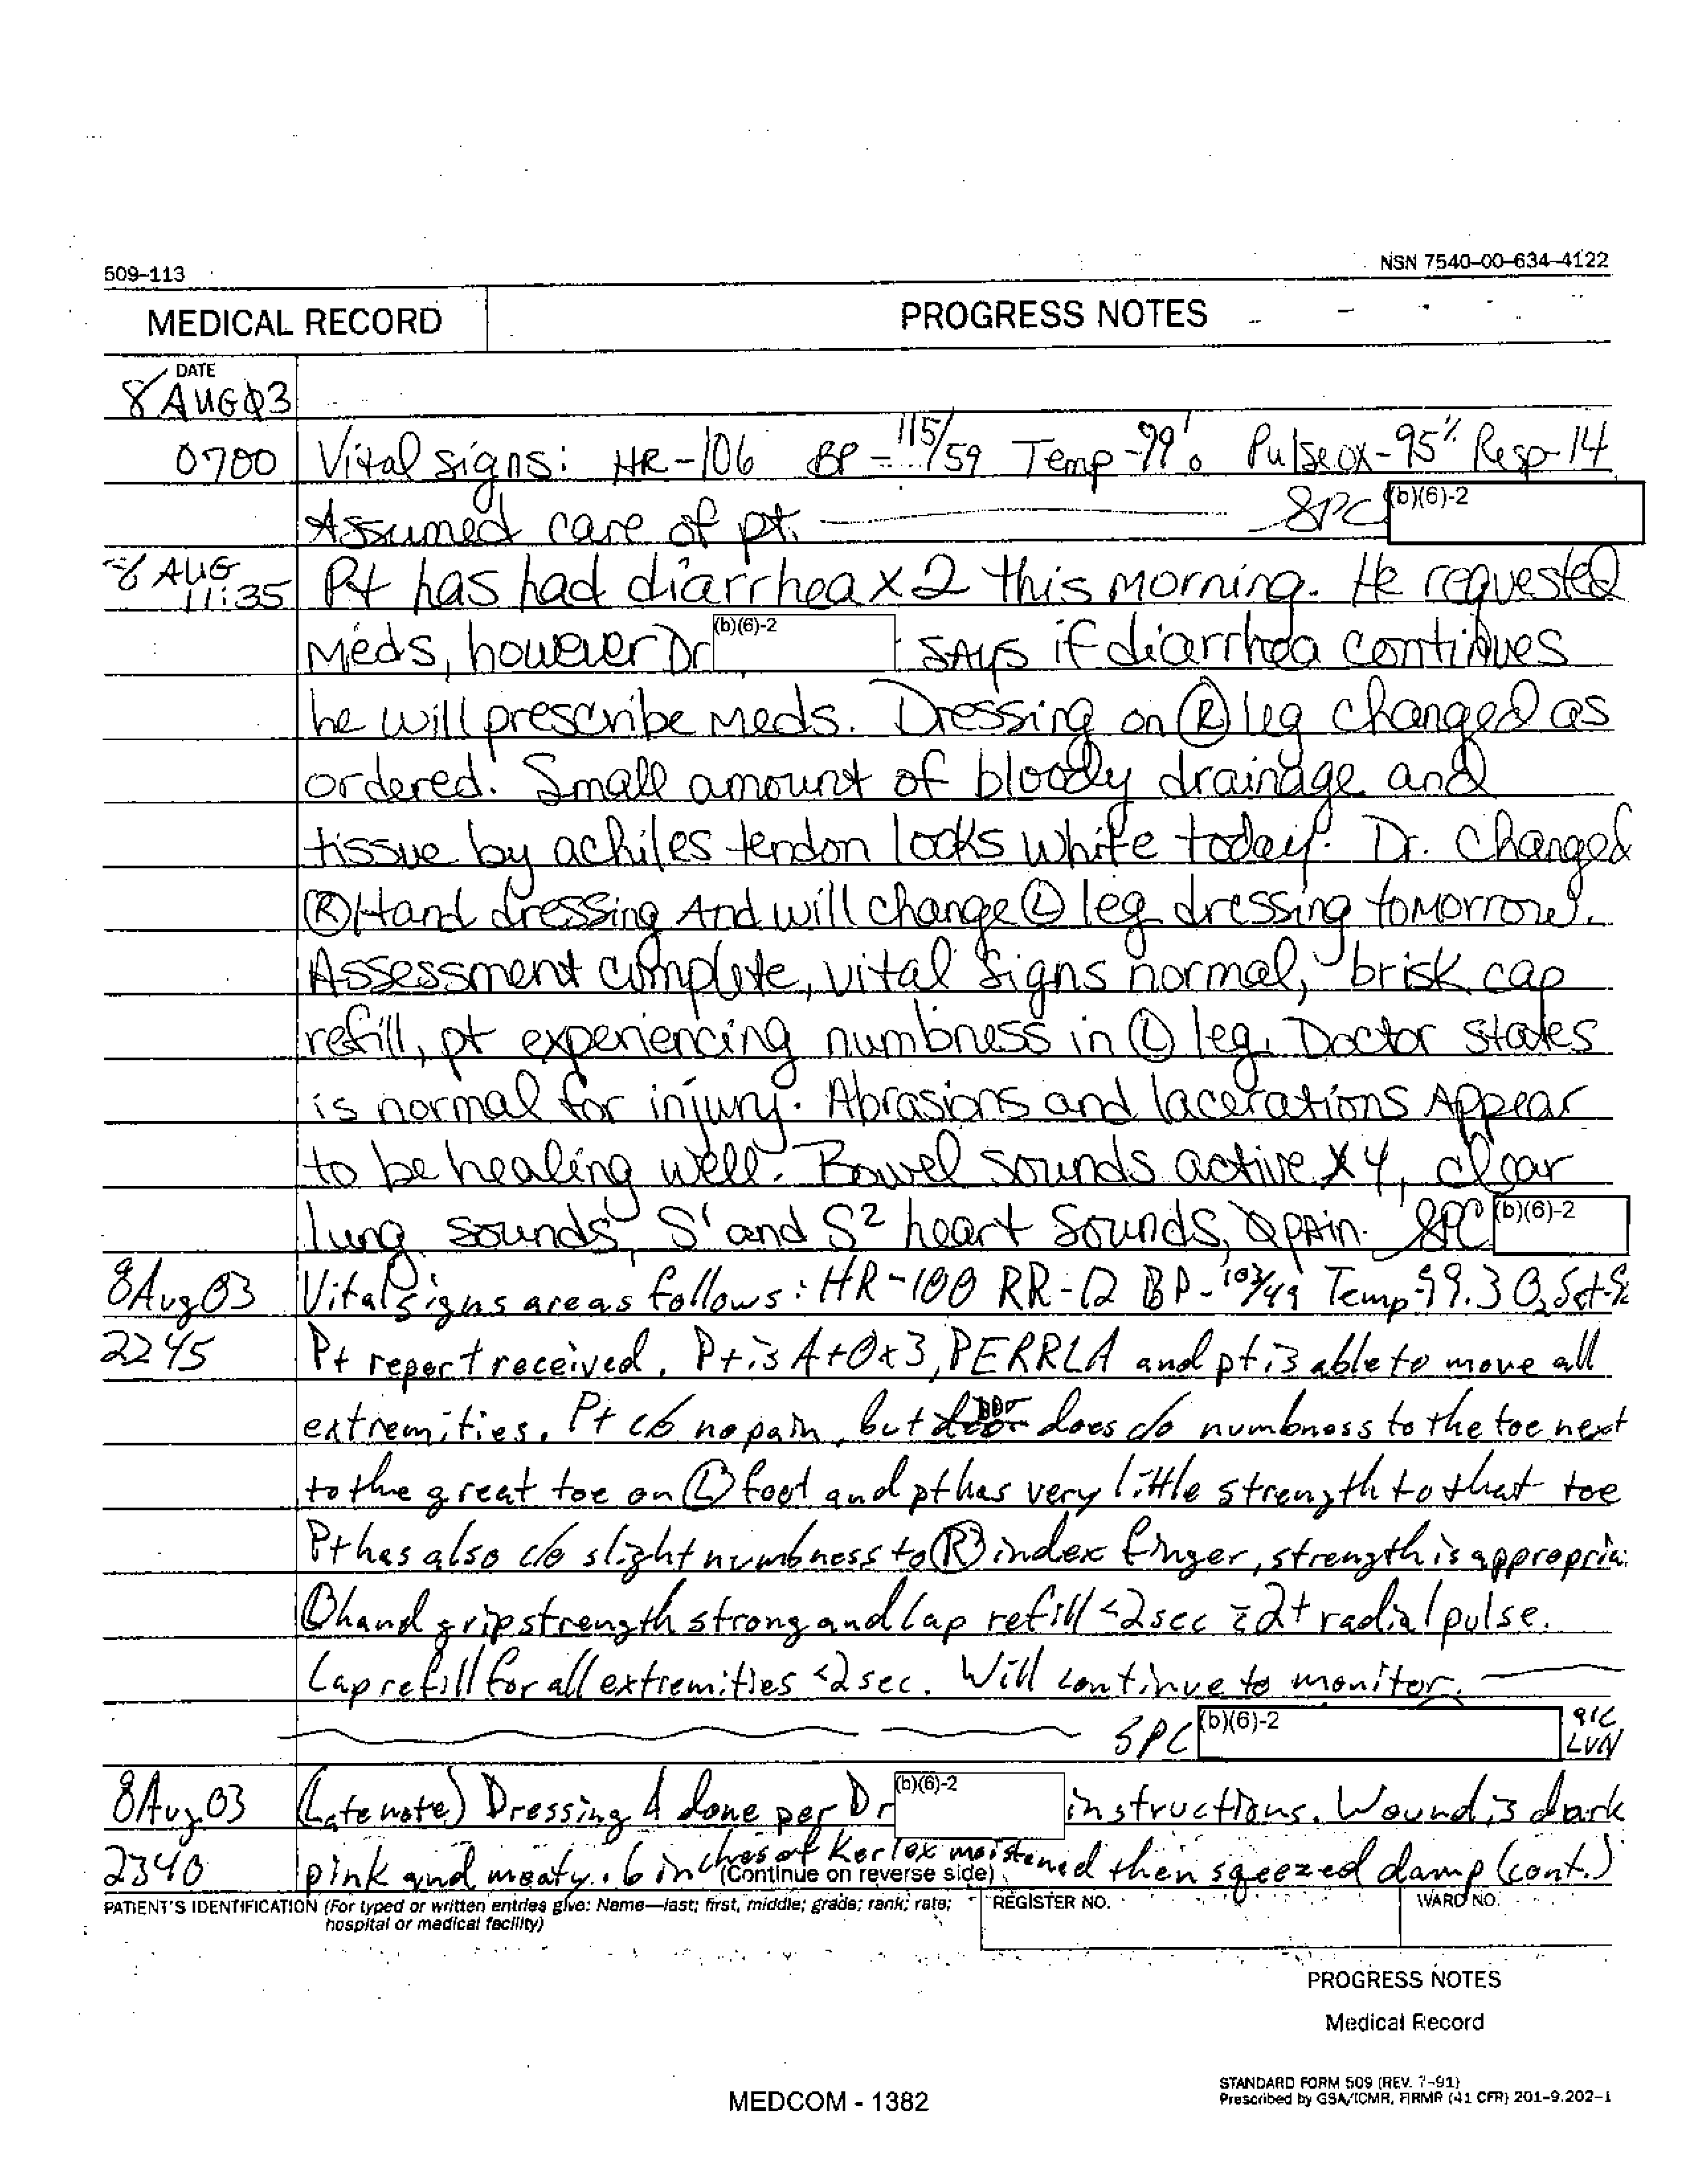 509-113
NSN 7540-00-634-4122
MEDICAL RECORD
PROGRESS NOTES
DATE
8 AUG 03
0700 Vital signs: HR-106 BP-115/59 Temp-99¹. Pulse ox-95% Resp-14
Assumed care of pt. SPC (b)(6)-2
8 AUG 11:35 Pt has had diarrhea x 2 this morning. He requested
Meds, however Dr (b)(6)-2 SAYS if diarrhea continues
he will prescribe Meds. Dressing on Ⓡ leg changed as
ordered. Small amount of bloody drainage and
tissue by achiles tendon looks white today. Dr. Changed
Ⓡ Hand dressing And will change Ⓛ leg dressing tomorrow.
Assessment complete, vital signs normal, brisk cap
refill, pt experiencing numbness in Ⓛ leg. Doctor states
is normal for injury. Abrasions and lacerations Appear
to be healing well. Bowel sounds active x 4, clear
lung sounds, S¹ and S² heart Sounds, Ø pAin. SPC (b)(6)-2
8 Aug 03 Vital signs are as follows: HR-100 RR-12 BP-103/49 Temp-99.3 O₂ Sat-
2245 Pt report received. Pt is A+O x 3, PERRLA and pt is able to move all
extremities. Pt c/o no pain, but does c/o numbness to the toe next
to the great toe on Ⓛ foot and pt has very little strength to that toe
Pt has also c/o slight numbness to Ⓡ index finger, strength is appropria
Ⓛ hand grip strength strong and Cap refill <2 sec c̄ 2+ radial pulse.
Cap refill for all extremities <2 sec. Will continue to monitor.
SPC (b)(6)-2 91C LVN
8 Aug 03 (Late note) Dressing Δ done per Dr (b)(6)-2 instructions. Wound is dark
2340 pink and meaty. 6 inches of Kerlex moistened then sqeezed damp (cont.)
(Continue on reverse side)
PATIENT'S IDENTIFICATION (For typed or written entries give: Name—last; first, middle; grade; rank; rate; hospital or medical facility)
REGISTER NO.
WARD NO.
PROGRESS NOTES
Medical Record
STANDARD FORM 509 (REV. 7-91)
Prescribed by GSA/ICMR, FIRMR (41 CFR) 201-9.202-1
MEDCOM - 1382